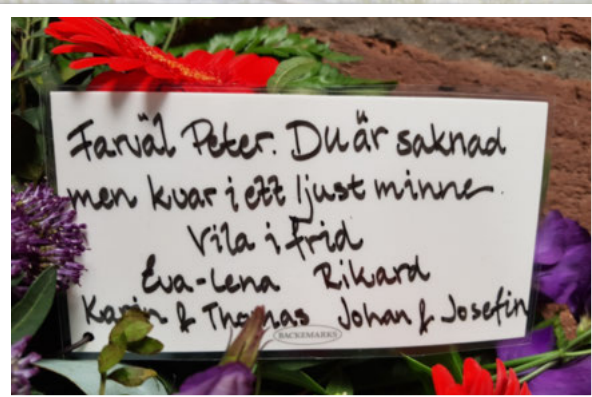 Farväl Peter. Du är saknad
men kvar i ett ljust minne.
Vila i frid
Eva-Lena Rikard
Karin & Thomas Johan & Josefin
BACKEMARKS